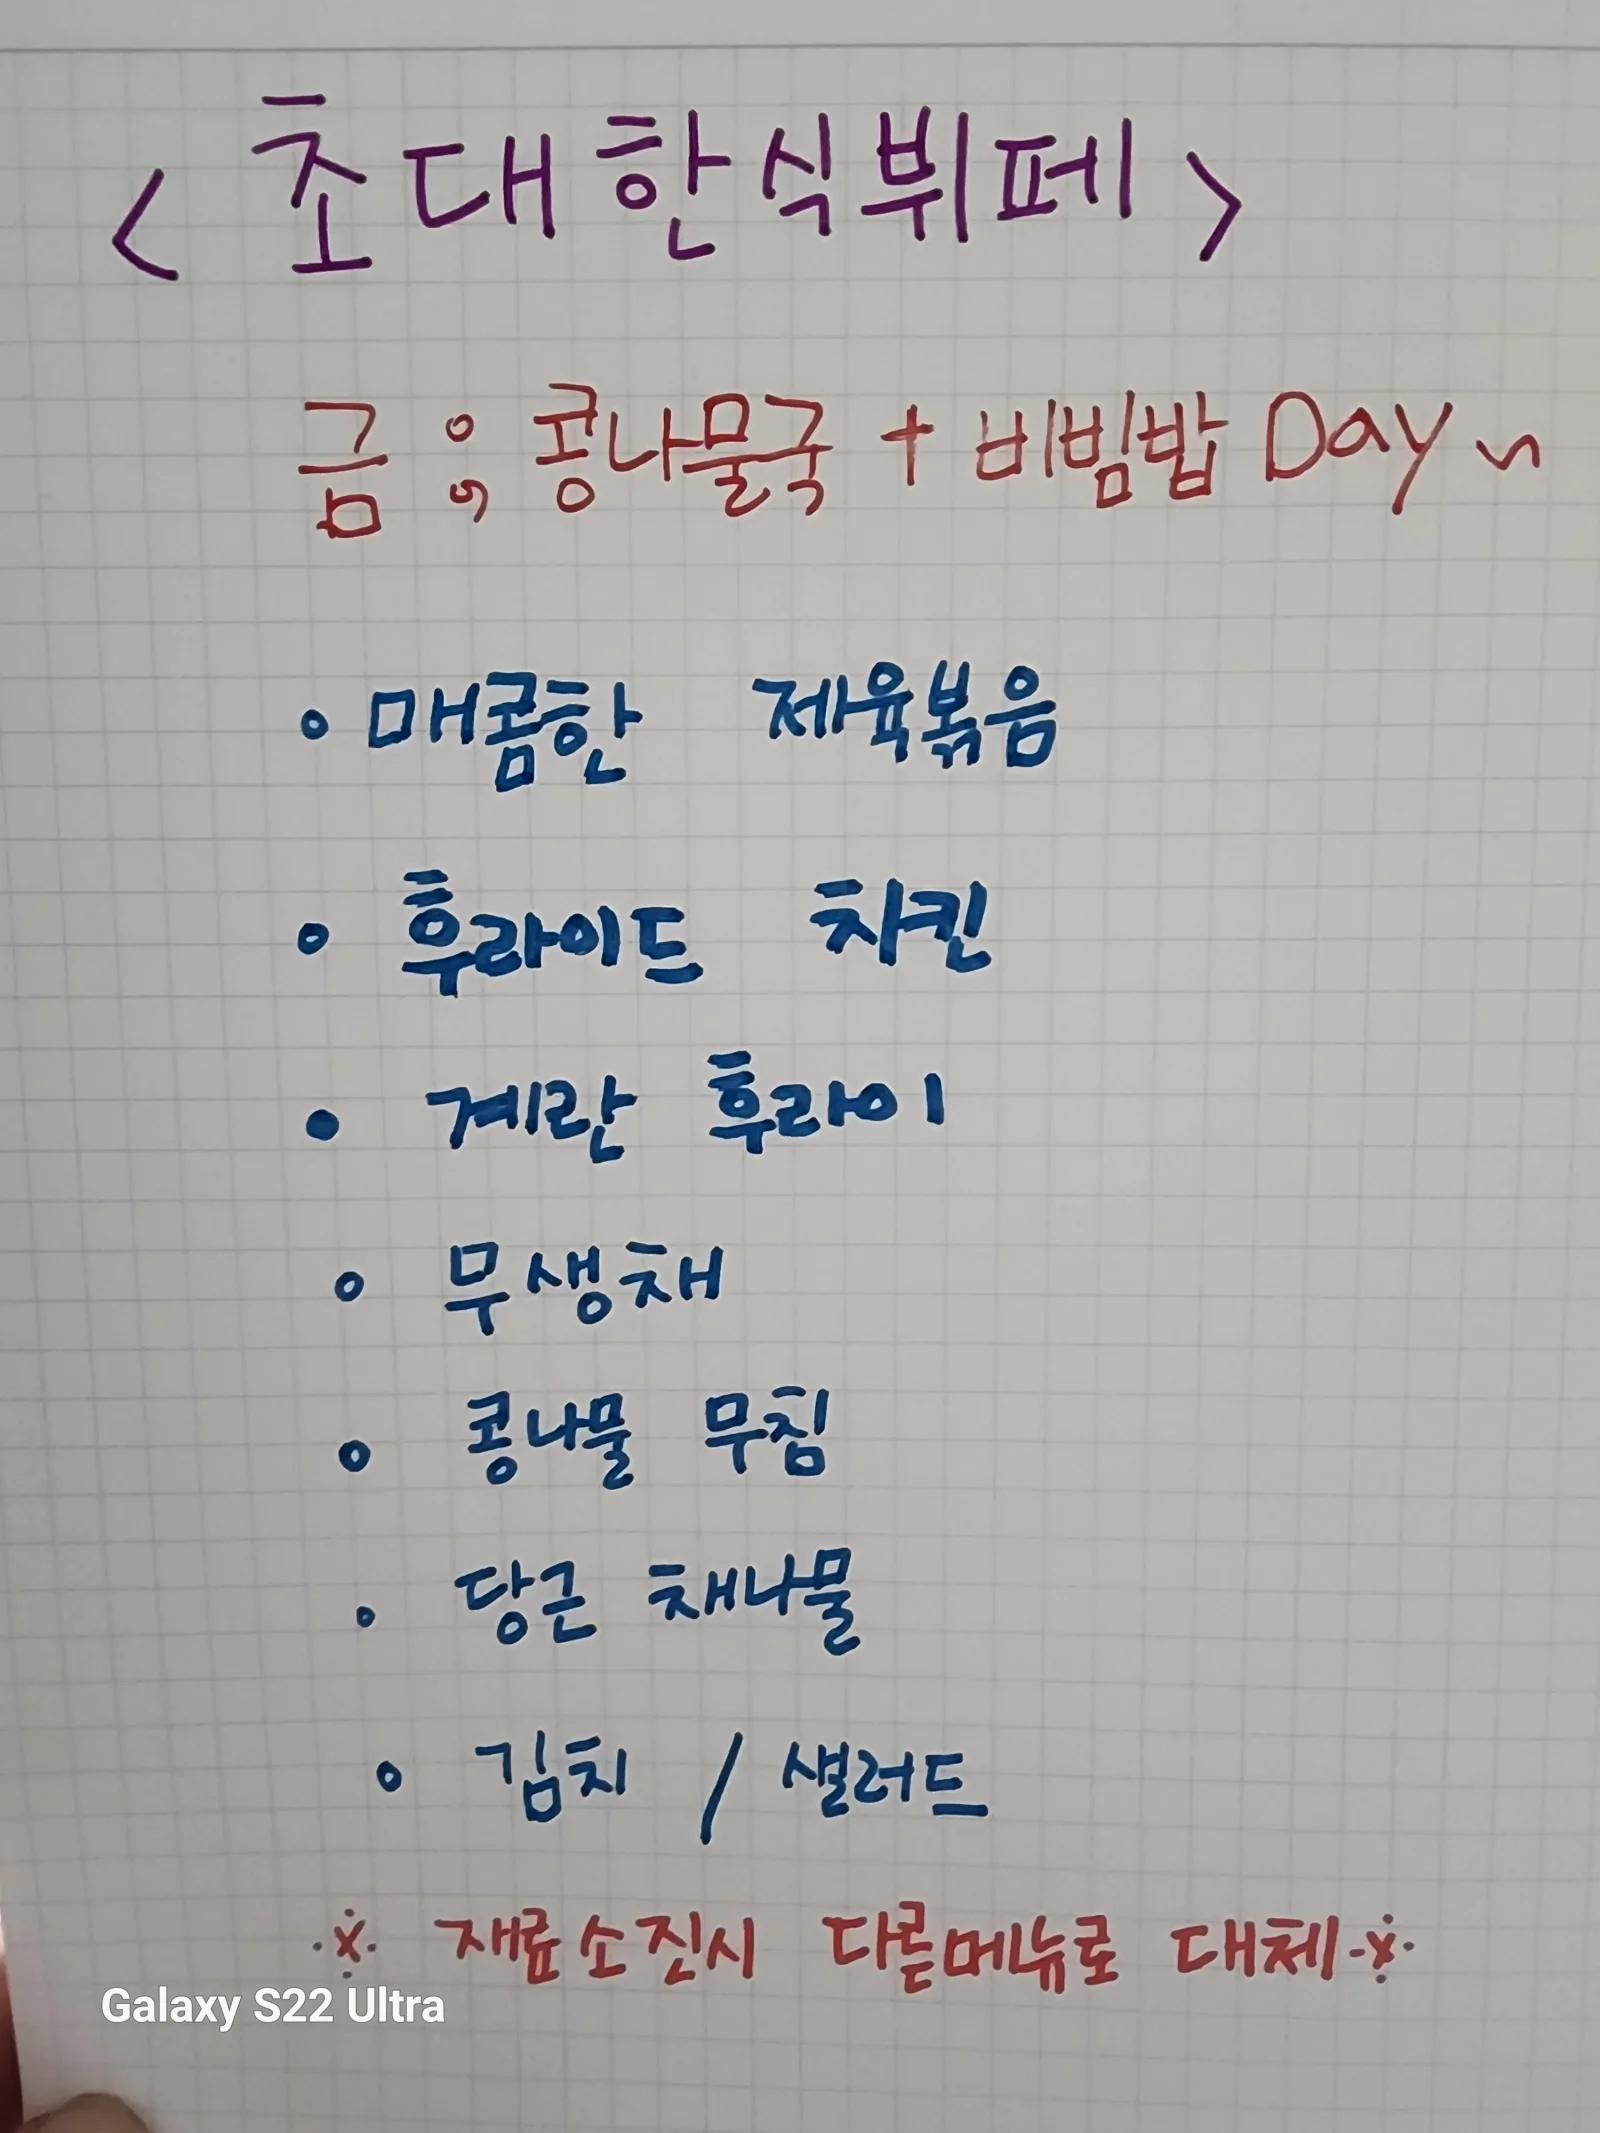 < 초대한식뷔페 >
금 : 콩나물국 + 비빔밥 Day ~
• 매콤한 제육볶음
• 후라이드 치킨
• 계란 후라이
• 무생채
• 콩나물 무침
• 당근 채나물
• 김치 / 샐러드
※ 재료소진시 다른메뉴로 대체 ※
Galaxy S22 Ultra